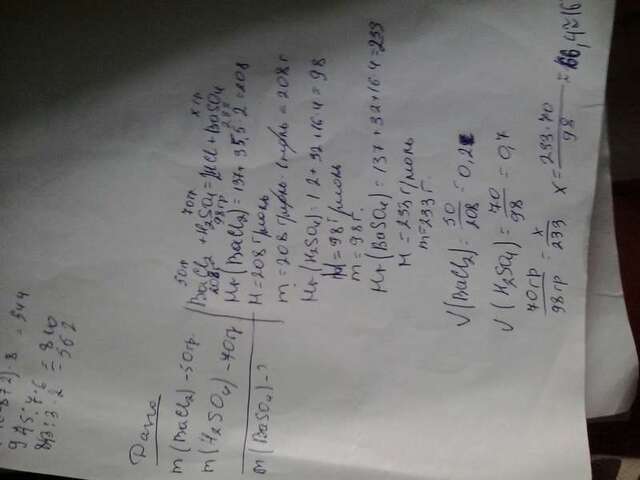 = 544
9 45:7·6 = 810
843:3·2 = 562
Дано
m(BaCl2) -50гр.
m(H2SO4) -70гр
m(BaSO4) -?
50гр 70гр xгр
BaCl2 + H2SO4 = HCl + BaSO4
208г 98гр 233
Mr(BaCl2) = 137 + 35,5·2 = 208
M = 208 г/моль
m = 208 г/моль · 1 моль = 208 г
Mr(H2SO4) = 1·2 + 32 + 16·4 = 98
M = 98 г/моль
m = 98 г.
Mr(BaSO4) = 137 + 32 + 16·4 = 233
M = 233 г/моль
m = 233 г.
V(BaCl2) = 50/208 = 0,2
V(H2SO4) = 70/98 = 0,7
70гр/98гр = x/233 x = 233·70/98